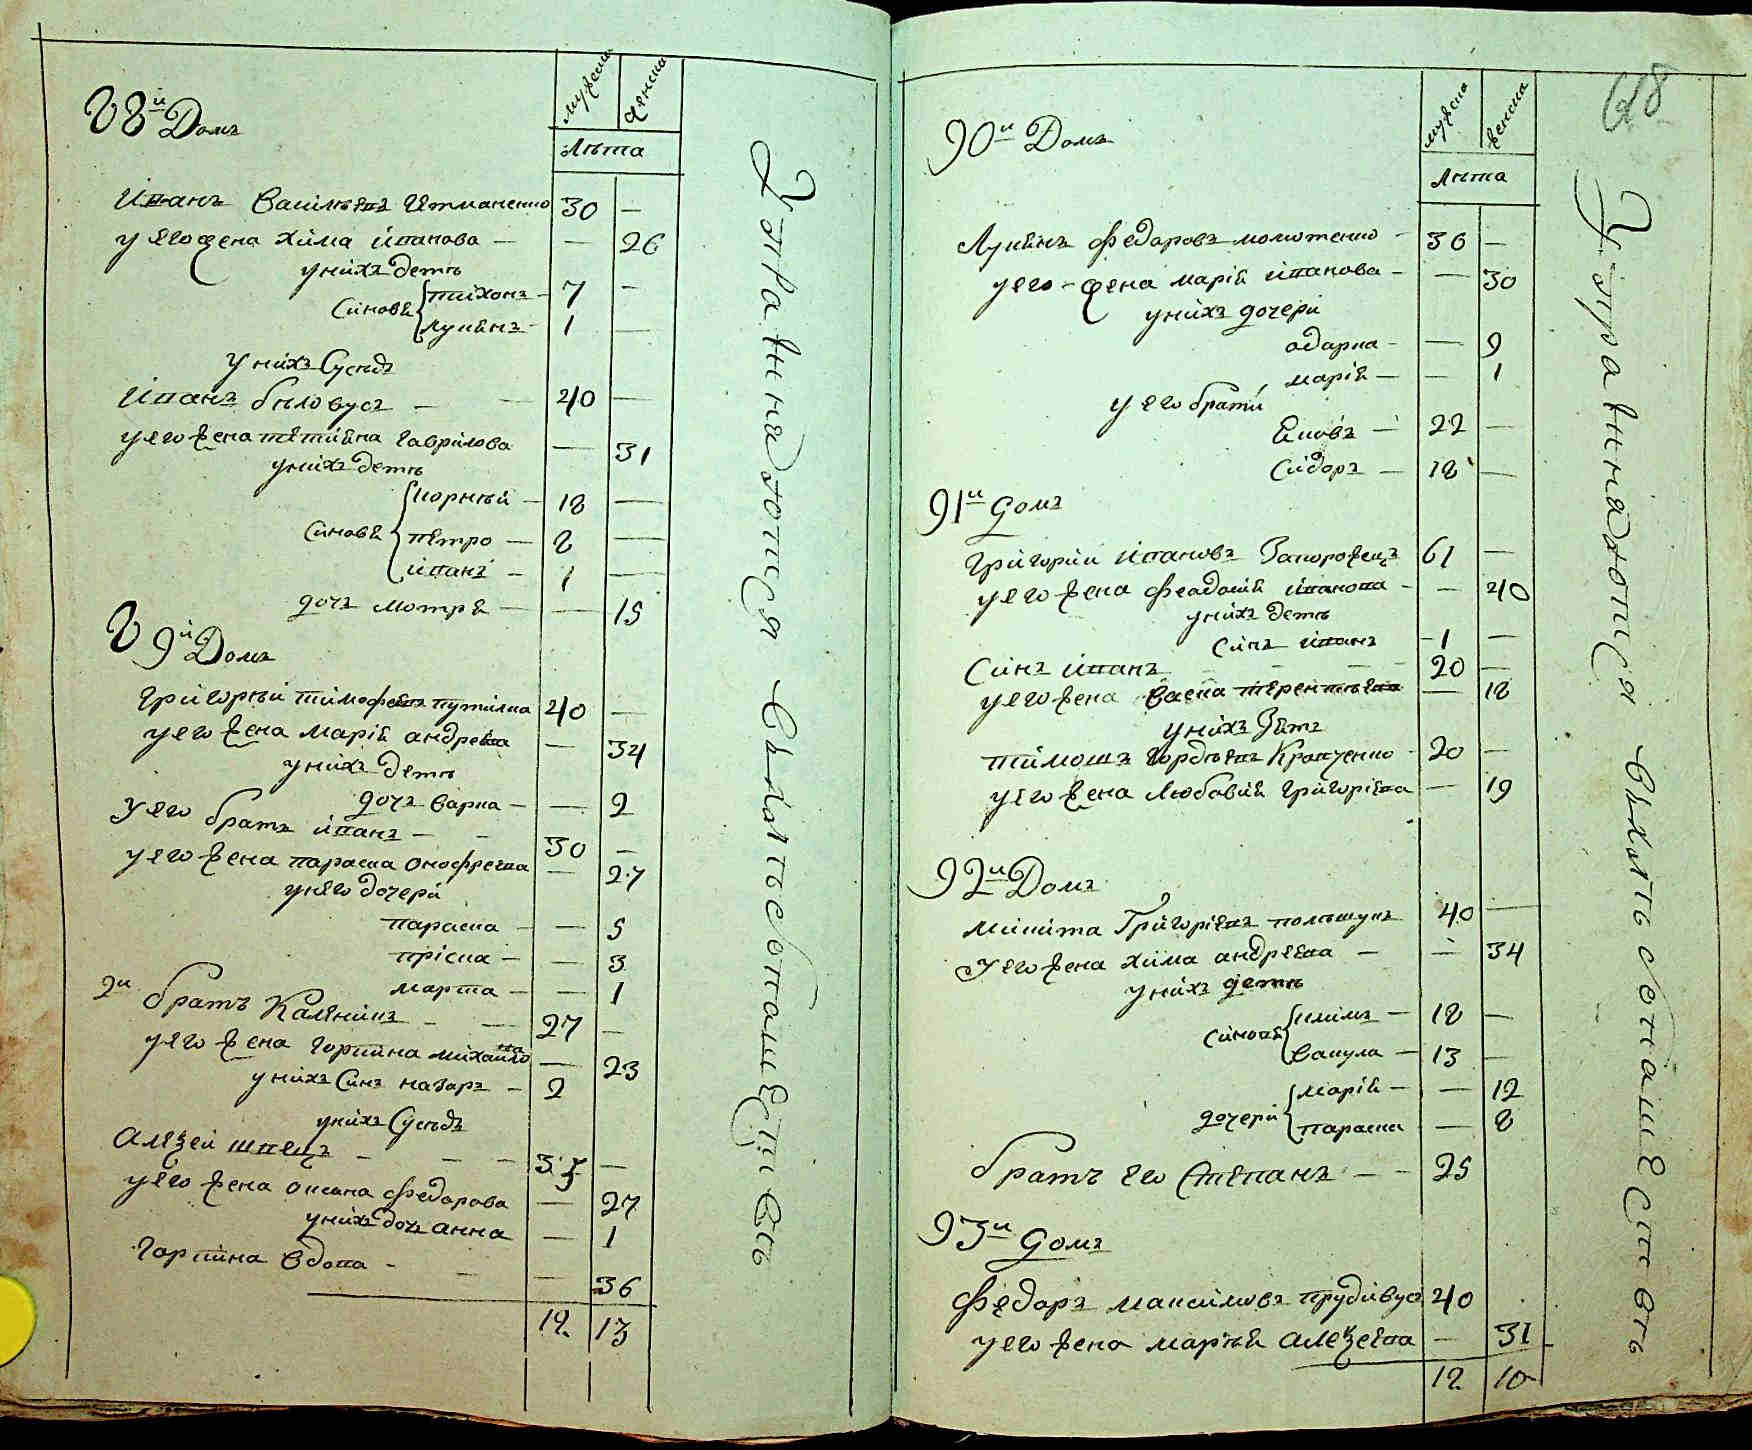 88й Домъ
мужска женска
Лѣта
Іванъ Василевъ Гетманенко 30 —
у его жена Хима Іванова — — 26
у нихъ дети
синове Тихонъ — 7 —
Лукянъ — 1 —
у нихъ Суседъ
Іванъ Белоусъ — — 40 —
у его жена Тетияна Гаврилова — 31
у нихъ дети
синове Корнѣй — 18 —
Петро — 8 —
Иванъ — 1 —
дочъ Мотря — — 15
89й Домъ
Григорѣй Тимофевъ Путилка 40 —
у его жена Марія Андрева — 34
у нихъ дети
дочъ Варка — — 2
у его братъ Иванъ — — 30 —
у его жена Параска Онофрева — 27
у него дочери
Параска — — 5
Пріска — — 3
Марта — — 1
2й братъ Каленикъ — — 27 —
у его жена Горпина Михайло — 23
у нихъ Синъ Назаръ — 2
у нихъ Суседъ
Алезей Швецъ — — — —
у его жена Оксана Федорова — 27
у нихъ дочъ Анна — 1
Горпина вдова — — — 36
12. 13
68
мужска женска
Лѣта
90й Домъ
Лукянъ Федоровъ — 36 —
у его жена Марія Іванова — — 30
у нихъ дочери
Одарка — — 9
Марія — — 1
у его брати
Яковъ — 22 —
Сидоръ — 18 —
91й домъ
Григорий Івановъ Запорожецъ 61 —
у его жена Феодосія Іванова — — 40
у нихъ дети
Синъ Иванъ 1 —
Синъ Иванъ — — — 20 —
у его жена Васка Терентьева — 18
у нихъ Зять
Тимошъ Гордѣевъ Кравченко — 20 —
у его жена Любовія Григоріева — 19
92й Домъ
Микита Григоріевъ 40 —
у его жена Хима Андрева — — 34
у нихъ дети
синове Климъ — 18 —
Вакула — 13 —
дочери Марія — — 12
Параска — — 8
братъ его Степанъ — — 25
93й домъ
Федоръ Максимовъ Прудивусъ 40
у его жена Марѣя Алезеева — 31
12 10